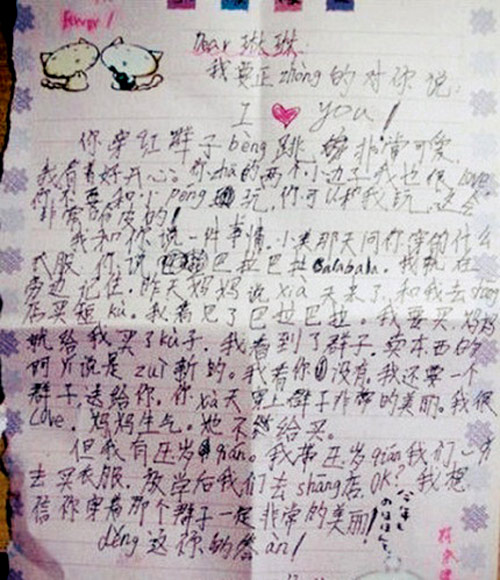 forever!
Dear 琳琳:
我要正zhòng的对你说:
I ❤ you!
你穿红群子bèng跳,非常可爱,
我看着好开心。你zhā的两个小边子我也很love,
你不要和小péng玩,你可以和我玩,这会
非常的皮的!
我和你说一件事情,小美那天问你穿的什么
衣服,你说巴拉巴拉Balabala,我就在
旁边记住,昨天妈妈说xià天来了,和我去shāng
店买短kù,我看见了巴拉巴拉。我要买,妈妈
就给我买了kù子,我看到了群子,卖东西的
阿片说是zuì新的。我看你没有,我还要一个
群子送给你,你xià天穿上群子非常的美丽。我很
love,妈妈生气。她不给买。
但我有压岁qián。我带压岁qián我们一
去买衣服,放学后我们去shāng店OK?我想
信你穿着那个群子一定非常的美丽!
děng这你的答àn!
今年も
ののほほん